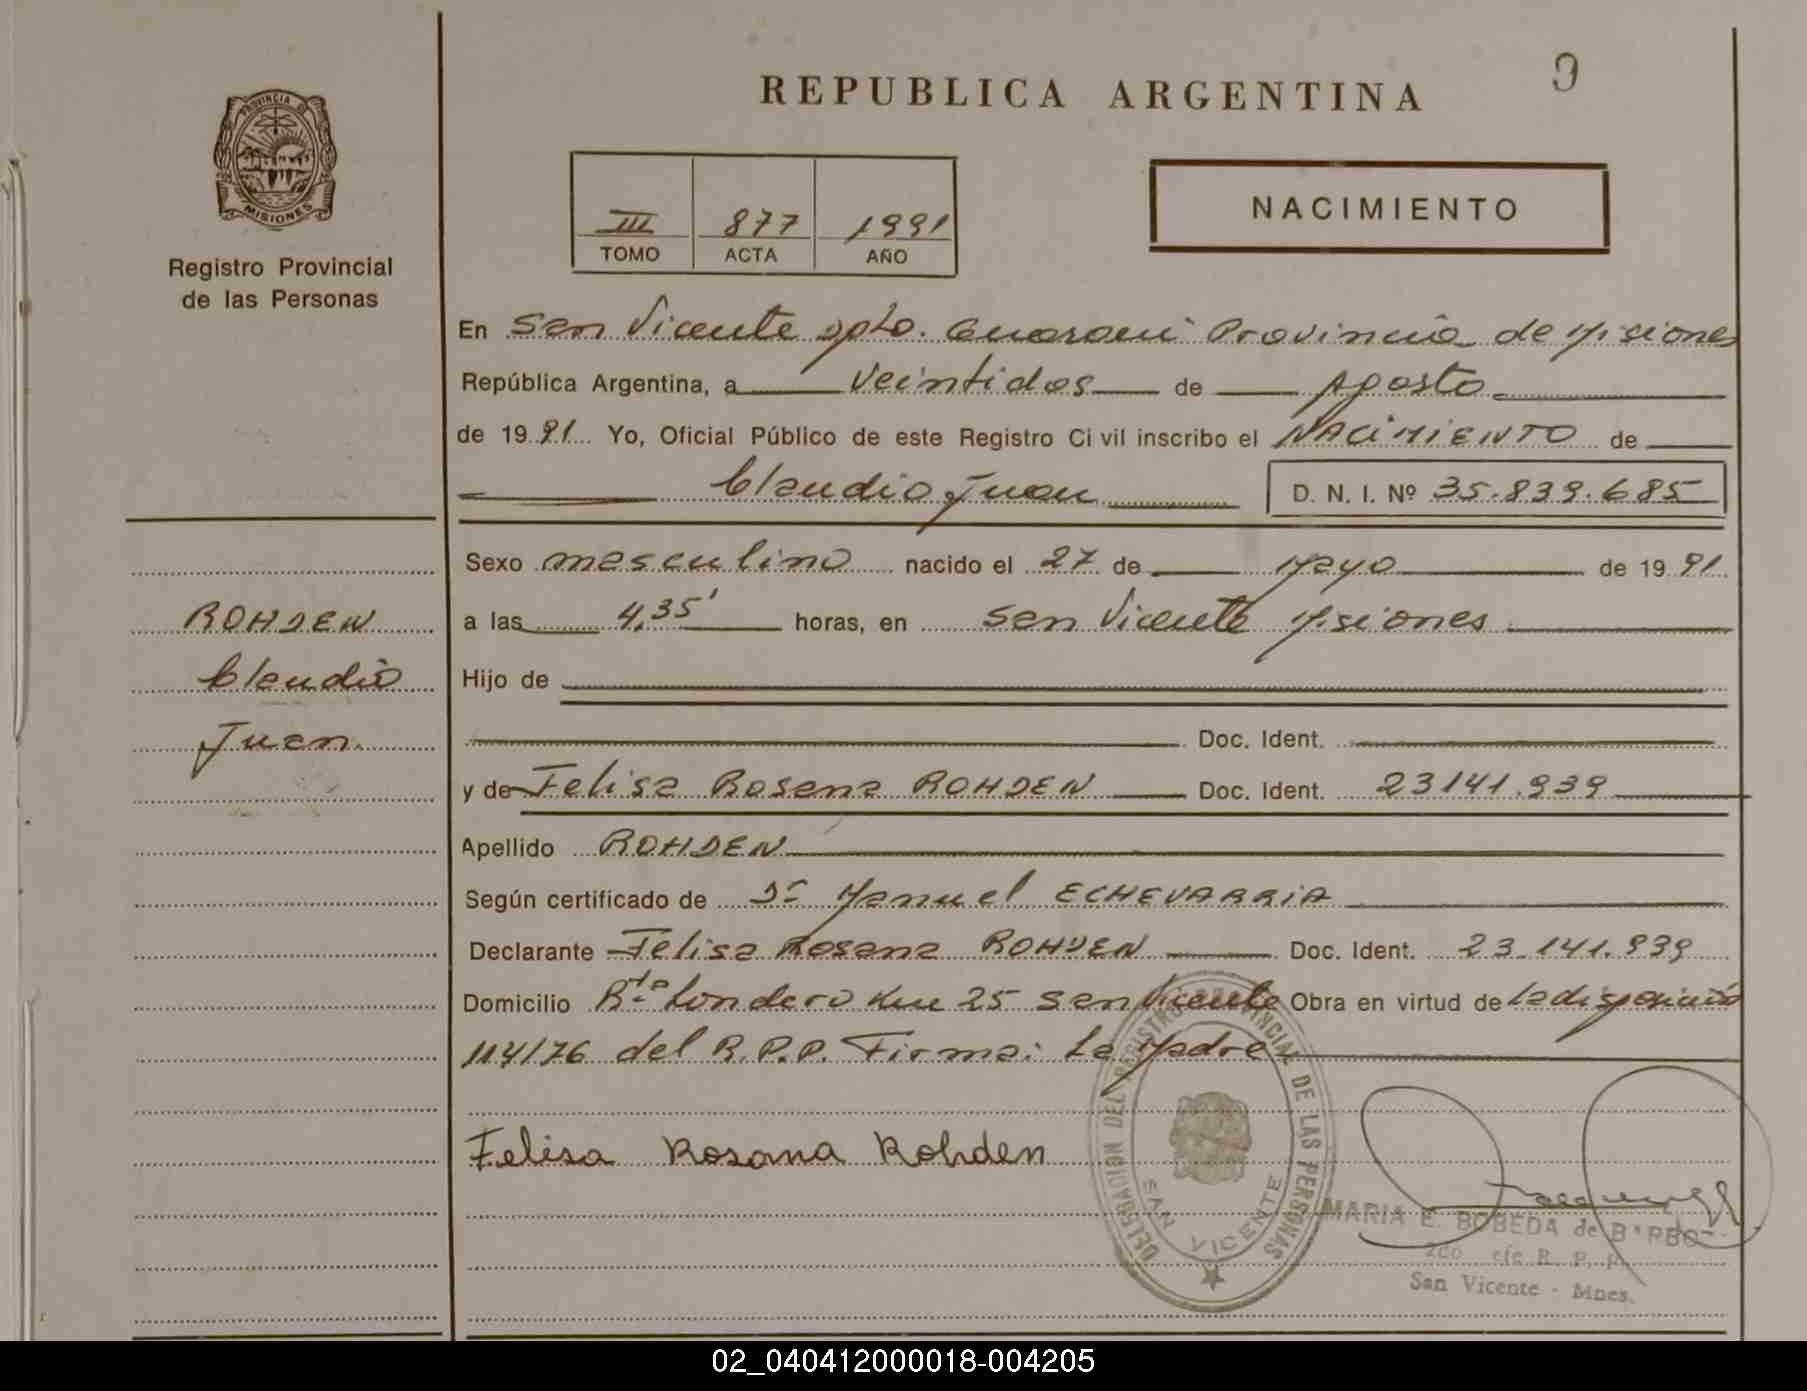 REPUBLICA ARGENTINA
9
PROVINCIA DE
MISIONES
Registro Provincial
de las Personas
III 877 1991
TOMO ACTA AÑO
NACIMIENTO
En San Vicente Dpto. Guarani Provincia de Misiones
República Argentina, a veintidos de Agosto
de 1991 Yo, Oficial Público de este Registro Civil inscribo el NACIMIENTO de
Claudio Juan D. N. I. Nº 35.839.685
Sexo masculino nacido el 27 de Mayo de 1991
ROHDEN
Claudio
Juan.
a las 4,35' horas, en San Vicente Misiones
Hijo de
Doc. Ident.
y de Felisa Rosana ROHDEN Doc. Ident. 23141.939
Apellido ROHDEN
Según certificado de Dr Manuel ECHEVARRIA
Declarante Felisa Rosana ROHDEN Doc. Ident. 23.141.939
Domicilio Londero Km 25 San Vicente Obra en virtud de La disposición
114/76 del R.P.P. Firma: La Madre
Felisa Rosana Rohden
DELEGACIÓN DEL REGISTRO PROVINCIAL DE LAS PERSONAS
SAN VICENTE
MARIA E. BOBEDA de BARBO
R. P. P.
San Vicente - Mnes.
02_040412000018-004205